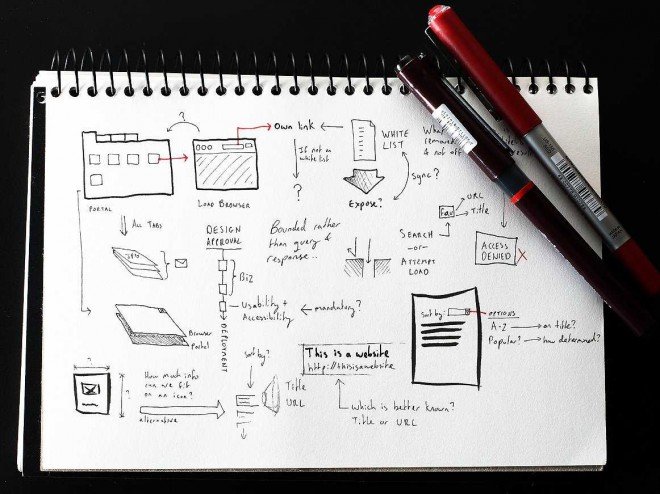 ?
Own link
WHITE
LIST
What
remove
& not off
If not on
white list
?
Sync?
Expose?
PORTAL
LOAD BROWSER
URL
Fav
Title
ALL TABS
DESIGN
APPROVAL
Bounded rather
than query &
response...
SEARCH
-or-
ATTEMPT
LOAD
ACCESS
DENIED
X
JPG
Biz
Usability +
Accessibility
mandatory?
DEPLOYMENT
Browser
Portal
Sort by:
OPTIONS
A-Z
on title?
Popular?
how determined?
?
How much info
can we fit
on an icon?
?
alternative
Sort by?
Title
URL
This is a website
http://thisisawebsite
Which is better known?
Title or URL